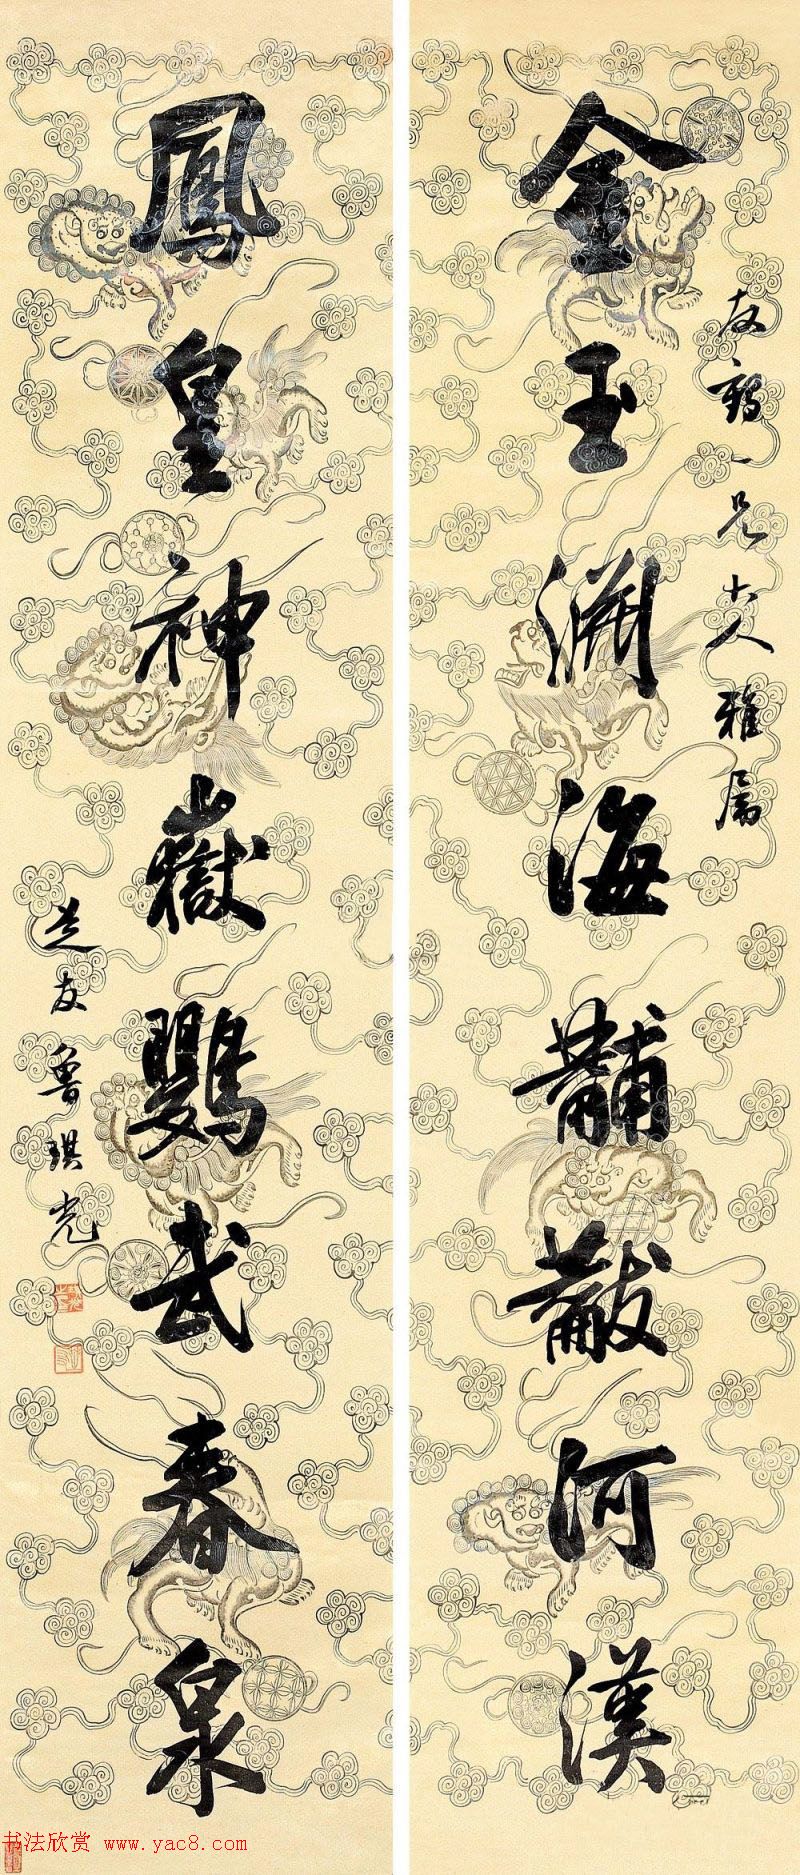 金玉淵海黼黻河漢
友鶴一兄大人雅屬
鳳皇神嶽鸚武春泉
芝友魯琪光
书法欣赏 www.yac8.com